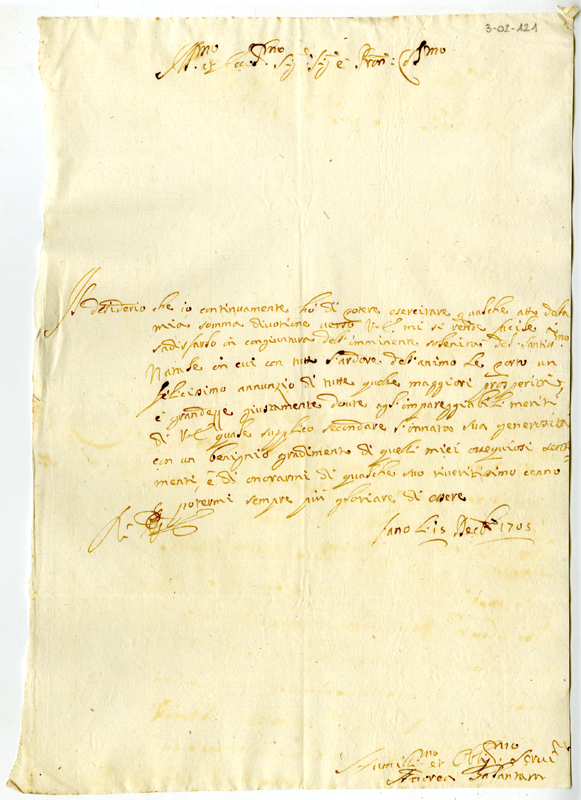 3-02-121
Ill.mo et Ecc.mo Sig.r Sig.r e Pron: Col.mo
Il desiderio che io continuamente hò di potere esercitare qualche atto della
mia somma divotione verso V.E. mi si rende facile à
sadisfarlo in congiuntura dell'imminente solenità del Santiss.mo
Natale in cui con tutto l'ardore dell'animo Le porto un
felicissimo annunzio di tutte quelle maggiori prosperità,
e grandezze giustamente dovute agl'impareggiabili meriti
di V.E. quale supplico secondare l'innatto sua generosità
con un benignio gradimento di questi miei ossequiosi senti-
menti, e di onorarmi di qualche suo riveritissimo cenno
potermi sempre più gloriare di essere
Fano Li 15 Decb.e 1705
Humiliss.mo et Oblig.mo Servit.re
Andrea